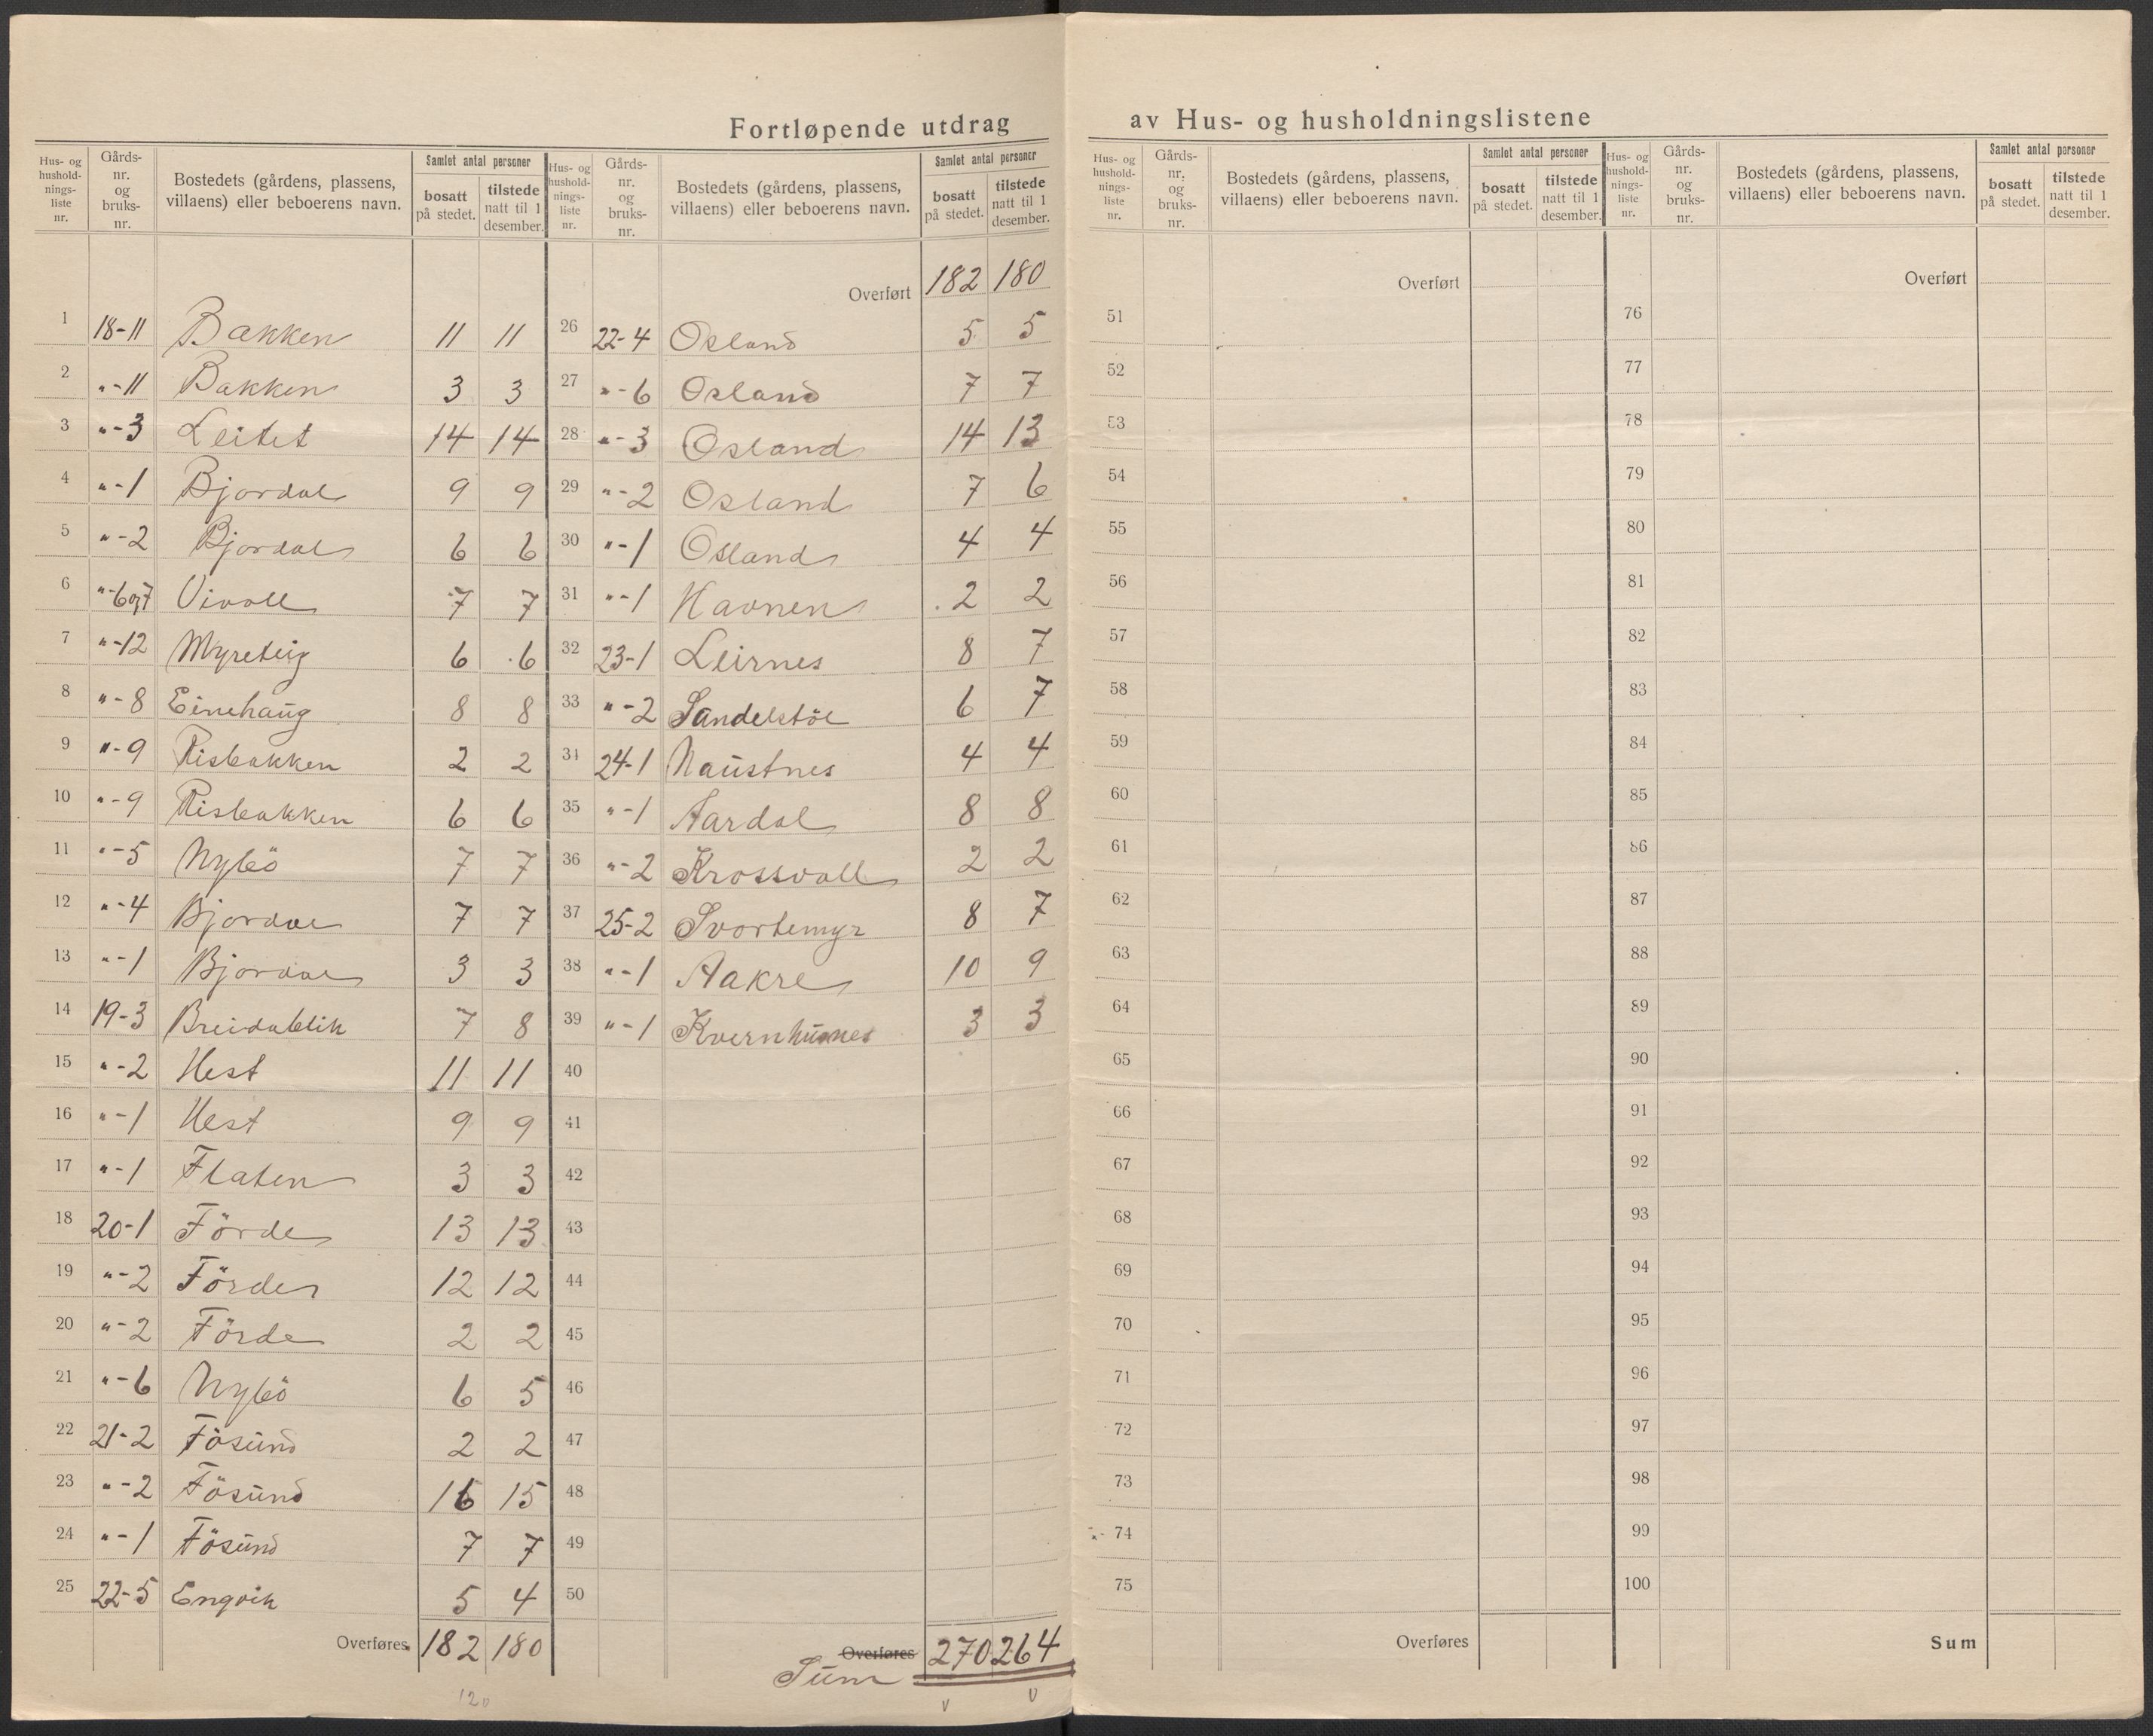 Fortløpende utdrag av Hus- og husholdningslistene
Hus- og husholdnings-liste nr. Gårds-nr. og bruks-nr. Bostedets (gårdens, plassens, villaens) eller beboerens navn. Samlet antal personer bosatt på stedet. tilstede natt til 1 desember.
1 18-11 Bakken 11 11
2 "-11 Bakken 3 3
3 "-3 Leitet 14 14
4 "-1 Bjordal 9 9
5 "-2 Bjordal 6 6
6 "-6 og 7 Vivoll 7 7
7 "-12 Myreteig 6 6
8 "-8 Einehaug 8 8
9 "-9 Risbakken 2 2
10 "-9 Risbakken 6 6
11 "-5 Nybö 7 7
12 "-4 Bjordal 7 7
13 "-1 Bjordal 3 3
14 19-3 Breidablik 7 8
15 "-2 Hest 11 11
16 "-1 Hest 9 9
17 "-1 Flaten 3 3
18 20-1 Förde 13 13
19 "-2 Förde 12 12
20 "-2 Förde 2 2
21 "-6 Nybö 6 5
22 21-2 Fösund 2 2
23 "-2 Fösund 16 15
24 "-1 Fösund 7 7
25 22-5 Engvik 5 4
Overføres 182 180
12
Hus- og husholdnings-liste nr. Gårds-nr. og bruks-nr. Bostedets (gårdens, plassens, villaens) eller beboerens navn. Samlet antal personer bosatt på stedet. tilstede natt til 1 desember.
Overført 182 180
26 22-4 Osland 5 5
27 "-6 Osland 7 7
28 "-3 Osland 14 13
29 "-2 Osland 7 6
30 "-1 Osland 4 4
31 "-1 Havnen 2 2
32 23-1 Leirnes 8 7
33 "-2 Sandelstöl 6 7
34 24-1 Naustnes 4 4
35 "-1 Aardal 8 8
36 "-2 Krossvoll 2 2
37 25-2 Svortemyr 8 7
38 "-1 Aakre 10 9
39 "-1 Kvernhusnes 3 3
40
41
42
43
44
45
46
47
48
49
50
Overføres 270 264
Sum
v v
Hus- og husholdnings-liste nr. Gårds-nr. og bruks-nr. Bostedets (gårdens, plassens, villaens) eller beboerens navn. Samlet antal personer bosatt på stedet. tilstede natt til 1 desember.
Overført
51
52
53
54
55
56
57
58
59
60
61
62
63
64
65
66
67
68
69
70
71
72
73
74
75
Overføres
Hus- og husholdnings-liste nr. Gårds-nr. og bruks-nr. Bostedets (gårdens, plassens, villaens) eller beboerens navn. Samlet antal personer bosatt på stedet. tilstede natt til 1 desember.
Overført
76
77
78
79
80
81
82
83
84
85
86
87
88
89
90
91
92
93
94
95
96
97
98
99
100
Sum